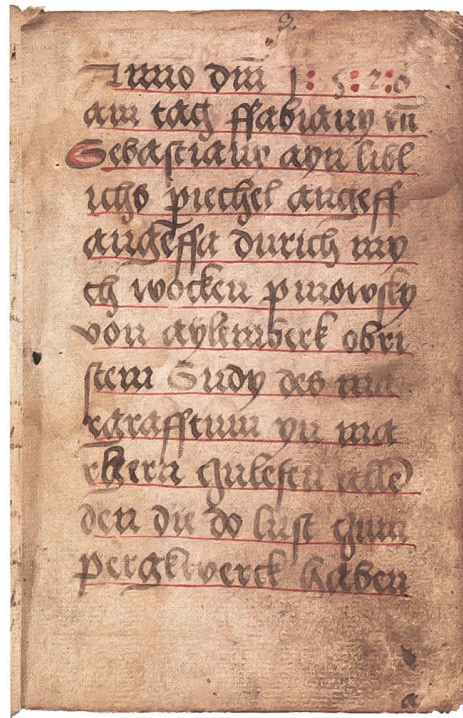 Anno dm̄ 1:5:2:0
am tag ffabiany vn̄
Sebastiany ayn libl
ichs piechel angeff
angeffa durich my
ch wocken pnowsky
von aylemberk obri
stem Sudy des ma
rgrafftum yn ma
rhern czulesen alle
den die do lust czum
pergkwerck haben